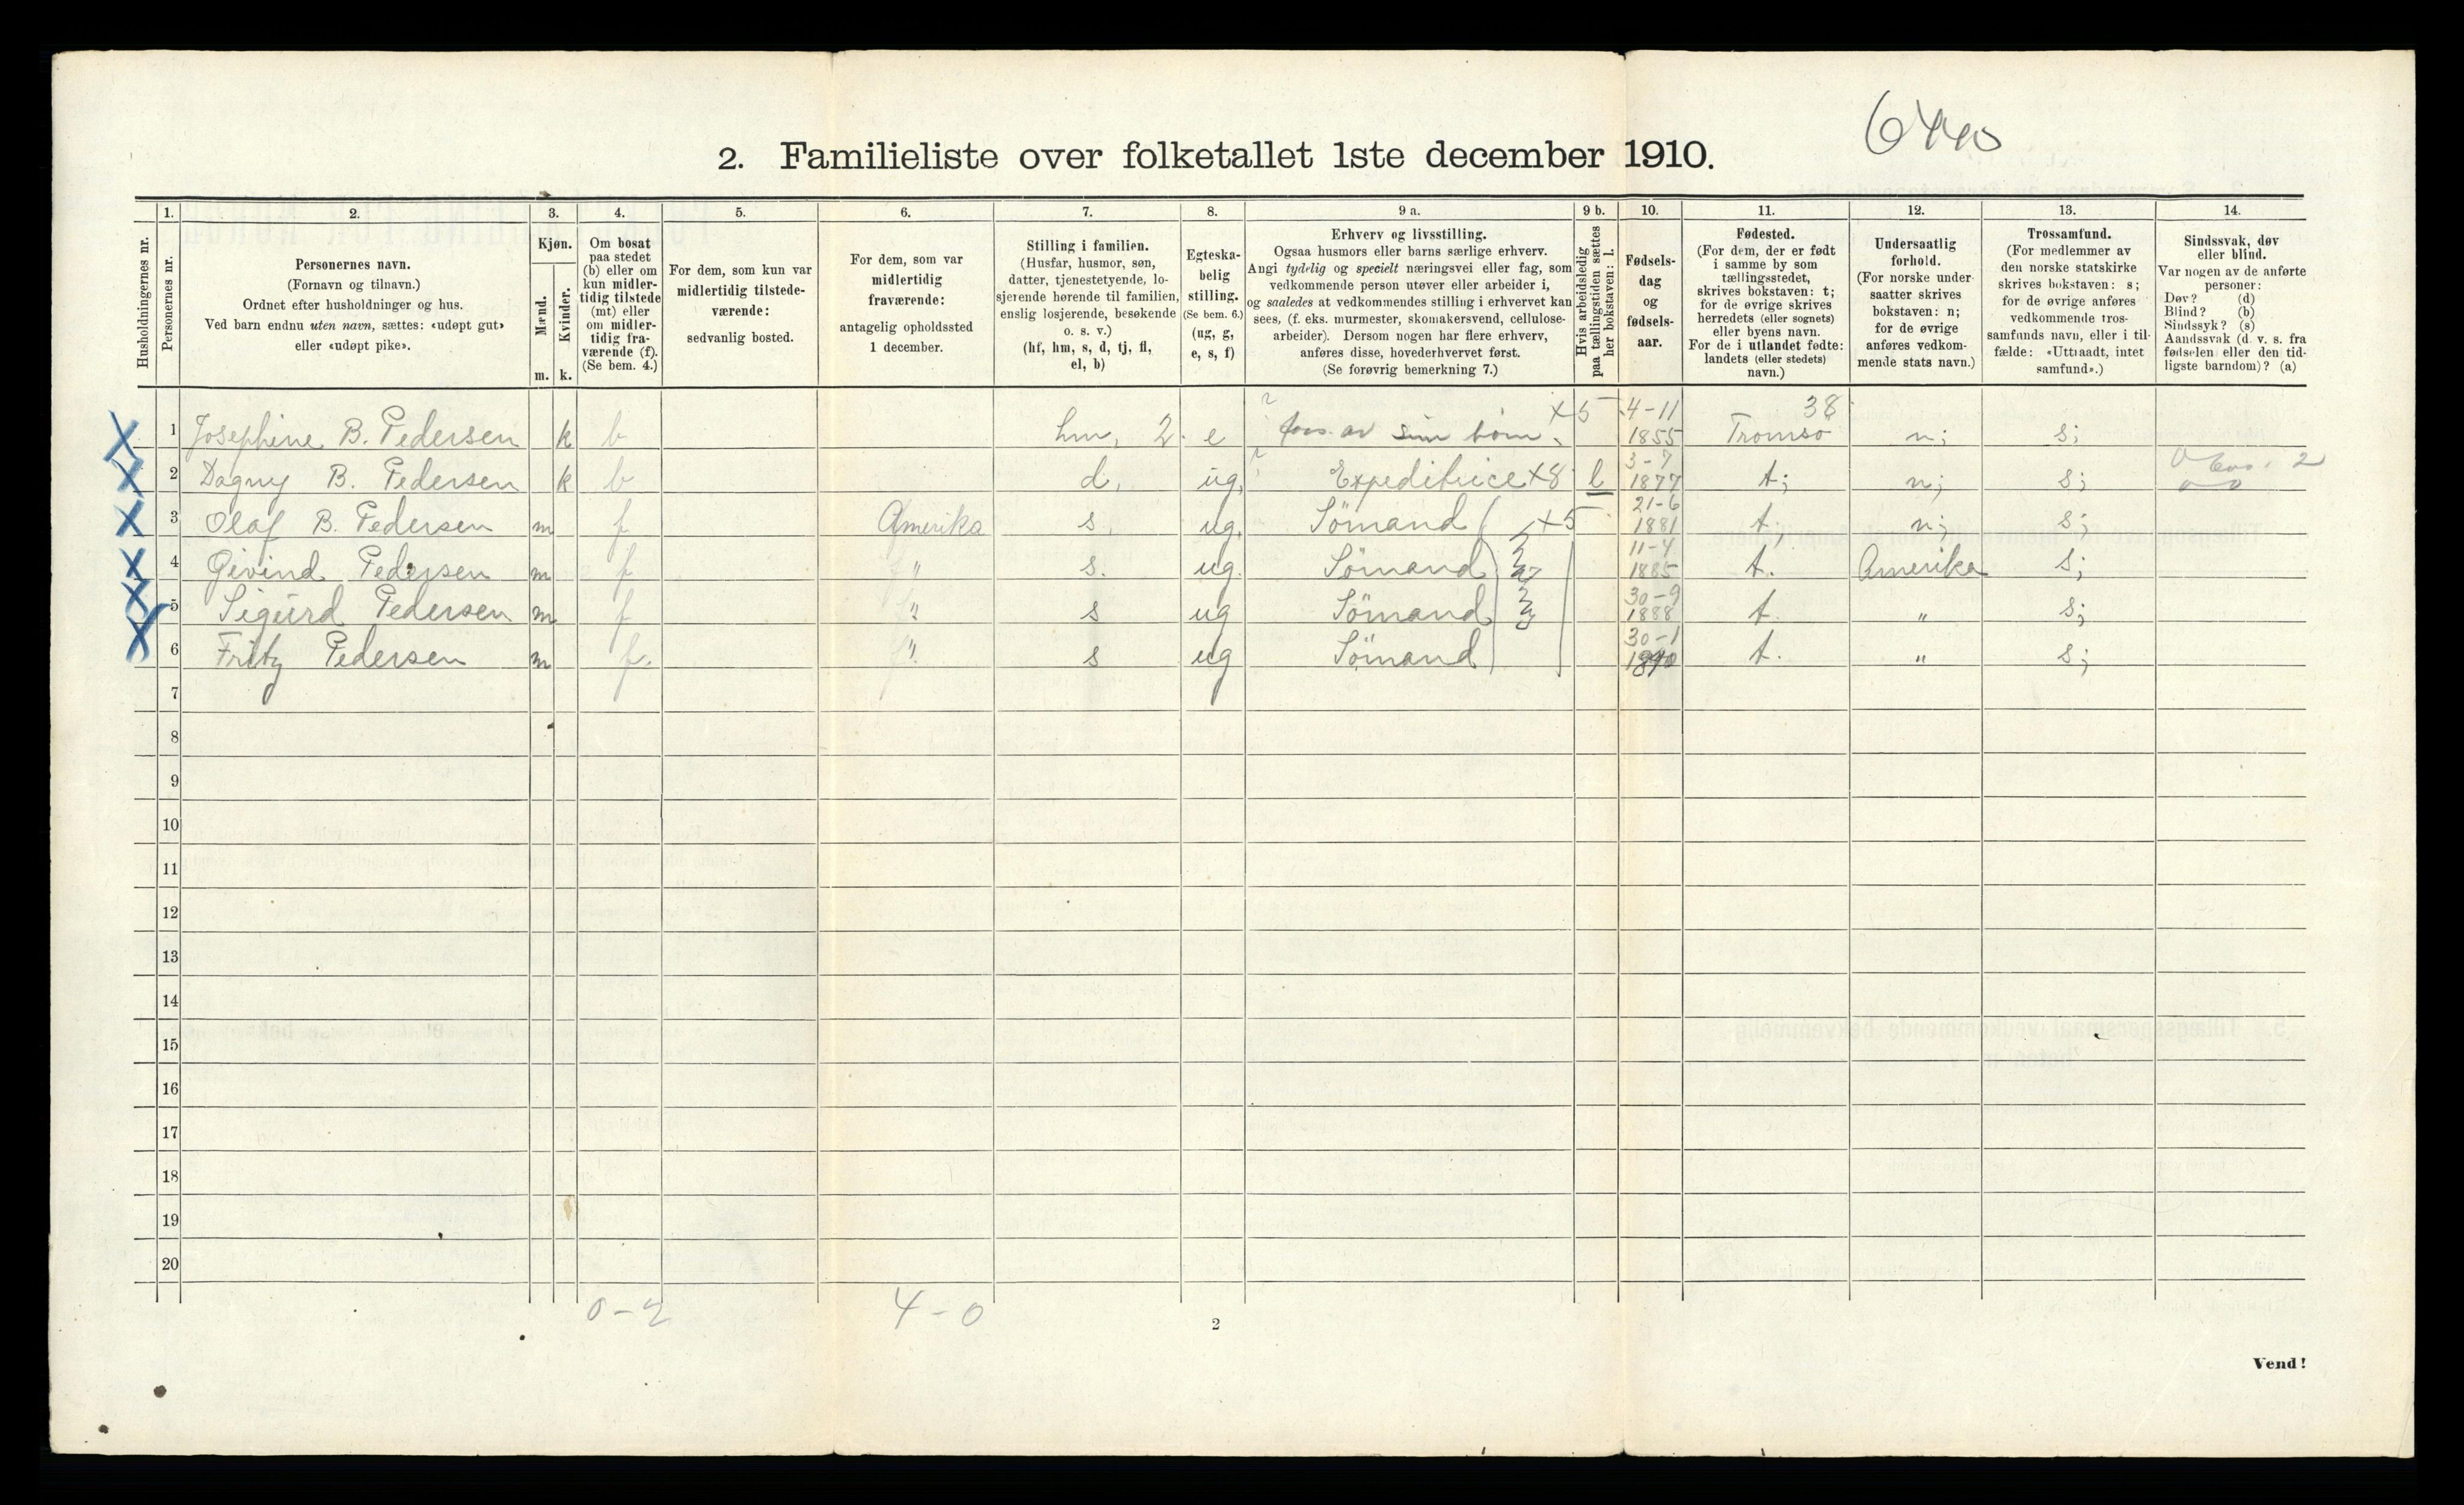 2. Familieliste over folketallet 1ste december 1910.
1. 2. 3. 4. 5. 6. 7. 8. 9 a. 9 b. 10. 11. 12. 13. 14.
Husholdningernes nr.
Personernes nr.
Personernes navn.
(Fornavn og tilnavn.)
Ordnet efter husholdninger og hus.
Ved barn endnu uten navn, sættes: «udøpt gut»
eller «udøpt pike».
Kjøn.
Mænd.
Kvinder.
m. k.
Om bosat
paa stedet
(b) eller om
kun midler-
tidig tilstede
(mt) eller
om midler-
tidig fra-
værende (f).
(Se bem. 4.)
For dem, som kun var
midlertidig tilstede-
værende:
sedvanlig bosted.
For dem, som var
midlertidig
fraværende:
antagelig opholdssted
1 december.
Stilling i familien.
(Husfar, husmor, søn,
datter, tjenestetyende, lo-
sjerende hørende til familien,
enslig losjerende, besøkende
o. s. v.)
(hf, hm, s, d, tj, fl,
el, b)
Egteska-
belig
stilling.
(Se bem. 6.)
(ug, g,
e, s, f)
Erhverv og livsstilling.
Ogsaa husmors eller barns særlige erhverv.
Angi tydelig og specielt næringsvei eller fag, som
vedkommende person utøver eller arbeider i,
og saaledes at vedkommendes stilling i erhvervet kan
sees, (f. eks. murmester, skomakersvend, cellulose-
arbeider). Dersom nogen har flere erhverv,
anføres disse, hovederhvervet først.
(Se forøvrig bemerkning 7.)
Hvis arbeidsledig
paa tællingstiden sættes
her bokstaven: l.
Fødsels-
dag
og
fødsels-
aar.
Fødested.
(For dem, der er født
i samme by som
tællingsstedet,
skrives bokstaven: t;
for de øvrige skrives
herredets (eller sognets)
eller byens navn.
For de i utlandet fødte:
landets (eller stedets)
navn.)
Undersaatlig
forhold.
(For norske under-
saatter skrives
bokstaven: n;
for de øvrige
anføres vedkom-
mende stats navn.)
Trossamfund.
(For medlemmer av
den norske statskirke
skrives bokstaven: s;
for de øvrige anføres
vedkommende tros-
samfunds navn, eller i til-
fælde: «Uttraadt, intet
samfund».)
Sindssvak, døv
eller blind.
Var nogen av de anførte
personer:
Døv? (d)
Blind? (b)
Sindssyk? (s)
Aandssvak (d. v. s. fra
fødselen eller den tid-
ligste barndom)? (a)
1 Josephine B. Pedersen k b hm, 2. e fors. av sine børn. x5 4-11 1855 38 Tromsø n; s;
2 Dagny B. Pedersen k b d, ug, Expeditrice x8 l 3-7 1877 t; n; s;
3 Olaf B. Pedersen m f Amerika s, ug, Sömand x5 21-6 1881 t; n; s;
4 Øivind Pedersen m f " s. ug. Sömand 11-4 1885 t. Amerika s;
5 Sigurd Pedersen m f " s ug Sömand 30-9 1888 t. " s;
6 Fritz Pedersen m f. " s ug Sömand 30-1 1890 t. " s;
7
8
9
10
11
12
13
14
15
16
17
18
19
20
0-2 4-0
2
Vend!